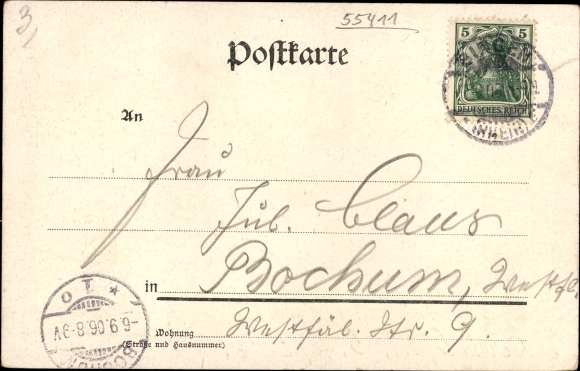 3,
55411
Postkarte
5 5
DEUTSCHES REICH
BINGEN (RHEIN)
An
Frau
Jul. Claus
in Bochum, Westfl.
Westfäl. Str. 9.
Wohnung
(Straße und Hausnummer)
BOCHUM
6.9.06. 8-9V